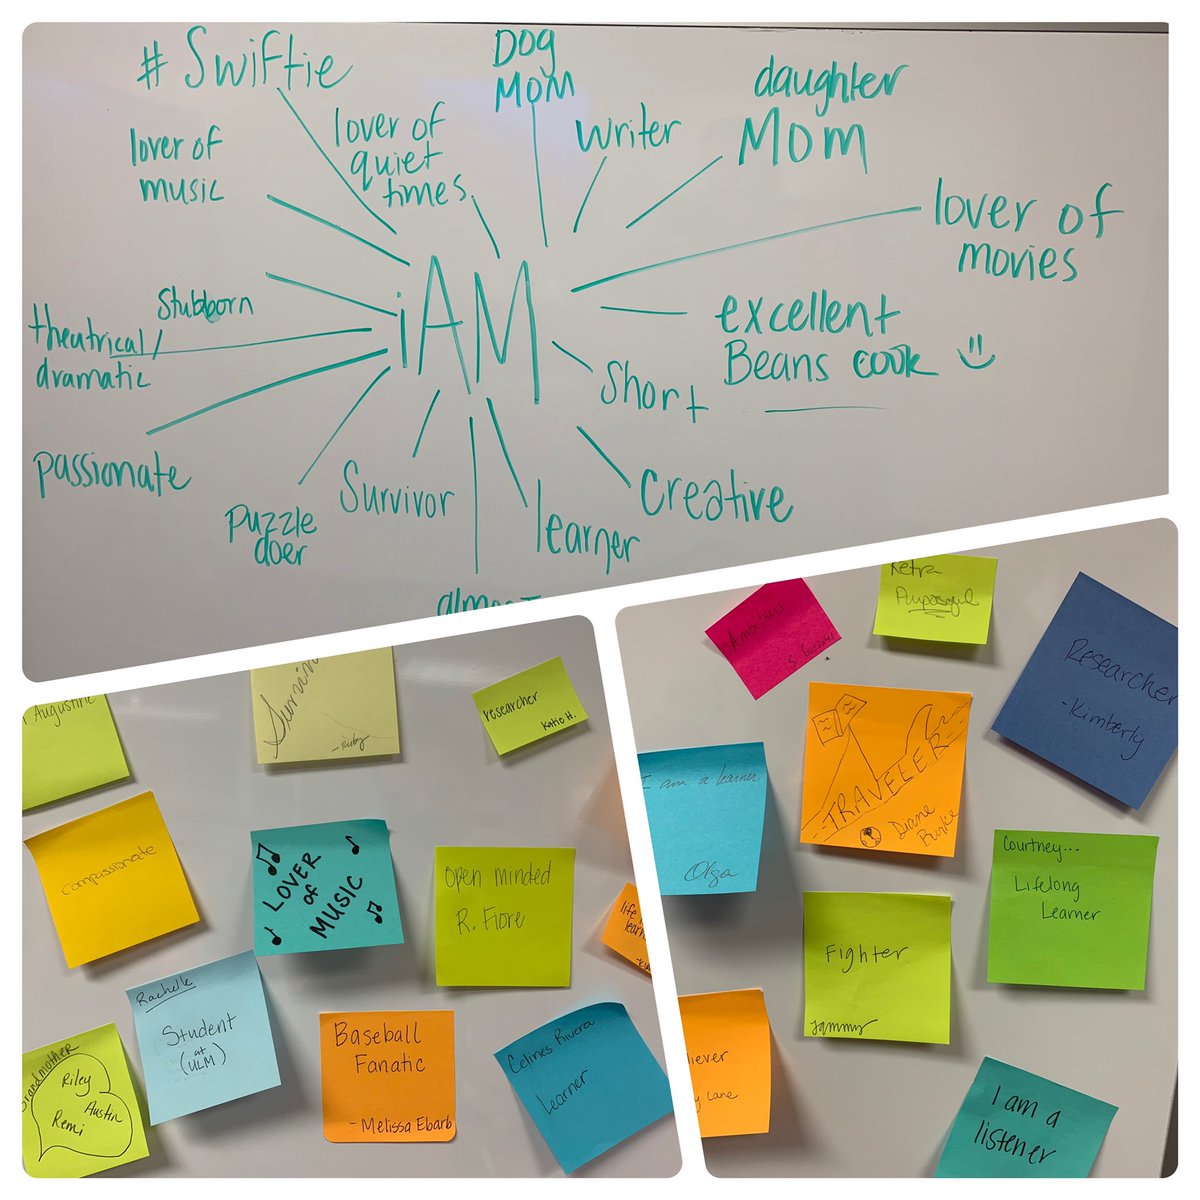 # Swiftie
Dog
Mom
daughter
Mom
writer
lover of
quiet
times
lover of
music
lover of
movies
Stubborn
theatrical/
dramatic
iAM
excellent
Beans cook
short
passionate
Survivor
Puzzle
doer
learner
Creative
Augustine
Ruby
researcher
Katie H.
compassionate
LOVER
of
MUSIC
open minded
R. Fiore
life
Rachelle
Student
(at
ULM)
Baseball
Fanatic
- Melissa Ebarb
Celines Rivera
Learner
Grandmother
Riley
Austin
Remi
Ketra
Purposeful
Researcher
- Kimberly
I am a learner
Olga
TRAVELER
Diane
Courtney...
Lifelong
Learner
Fighter
Tammy
Lane
I am a
listener